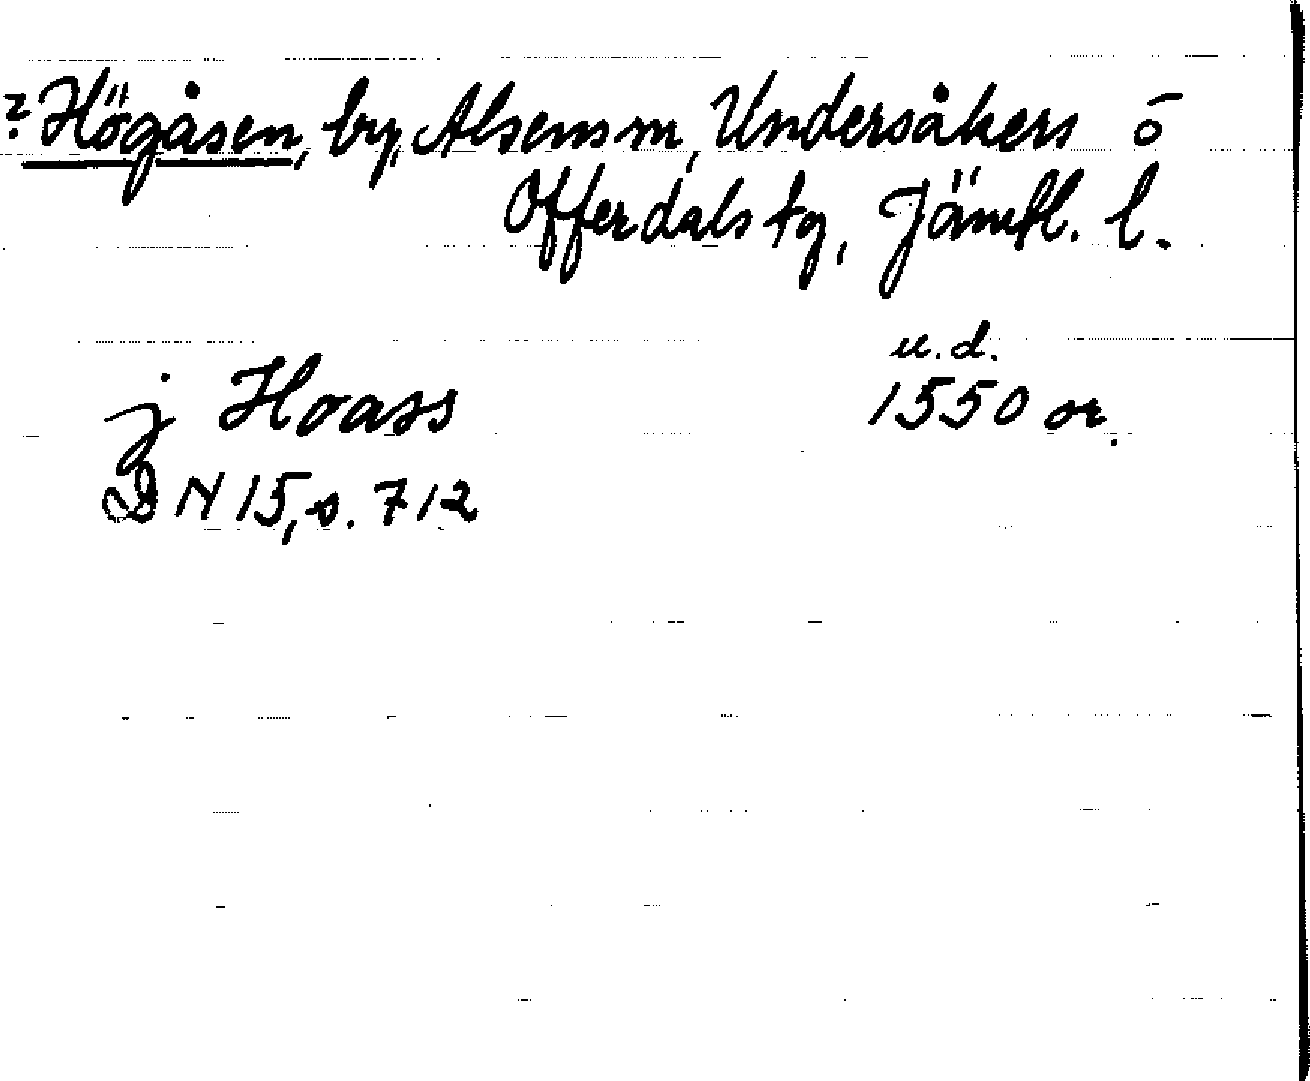 ? Högåsen, by, Alsens sn, Undersåkers o
Offerdals tg, Jämtl. l.
u.d.
j Hoass 1550 or.
DN 15, s. 712